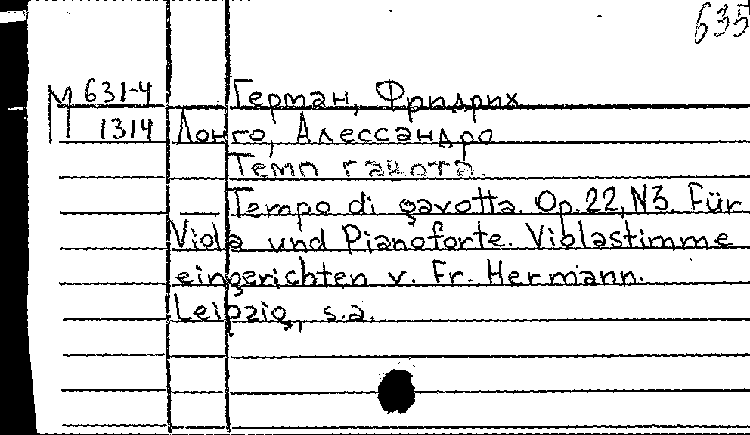 635
М 631-4 Герман, Фридрих
1314 Лонго, Алессандро
Темп гавота.
Tempo di gavotta. Op. 22, N3. Für
Viola und Pianoforte. Violastimme
eingerichten v. Fr. Hermann.
Leipzig, s.a.